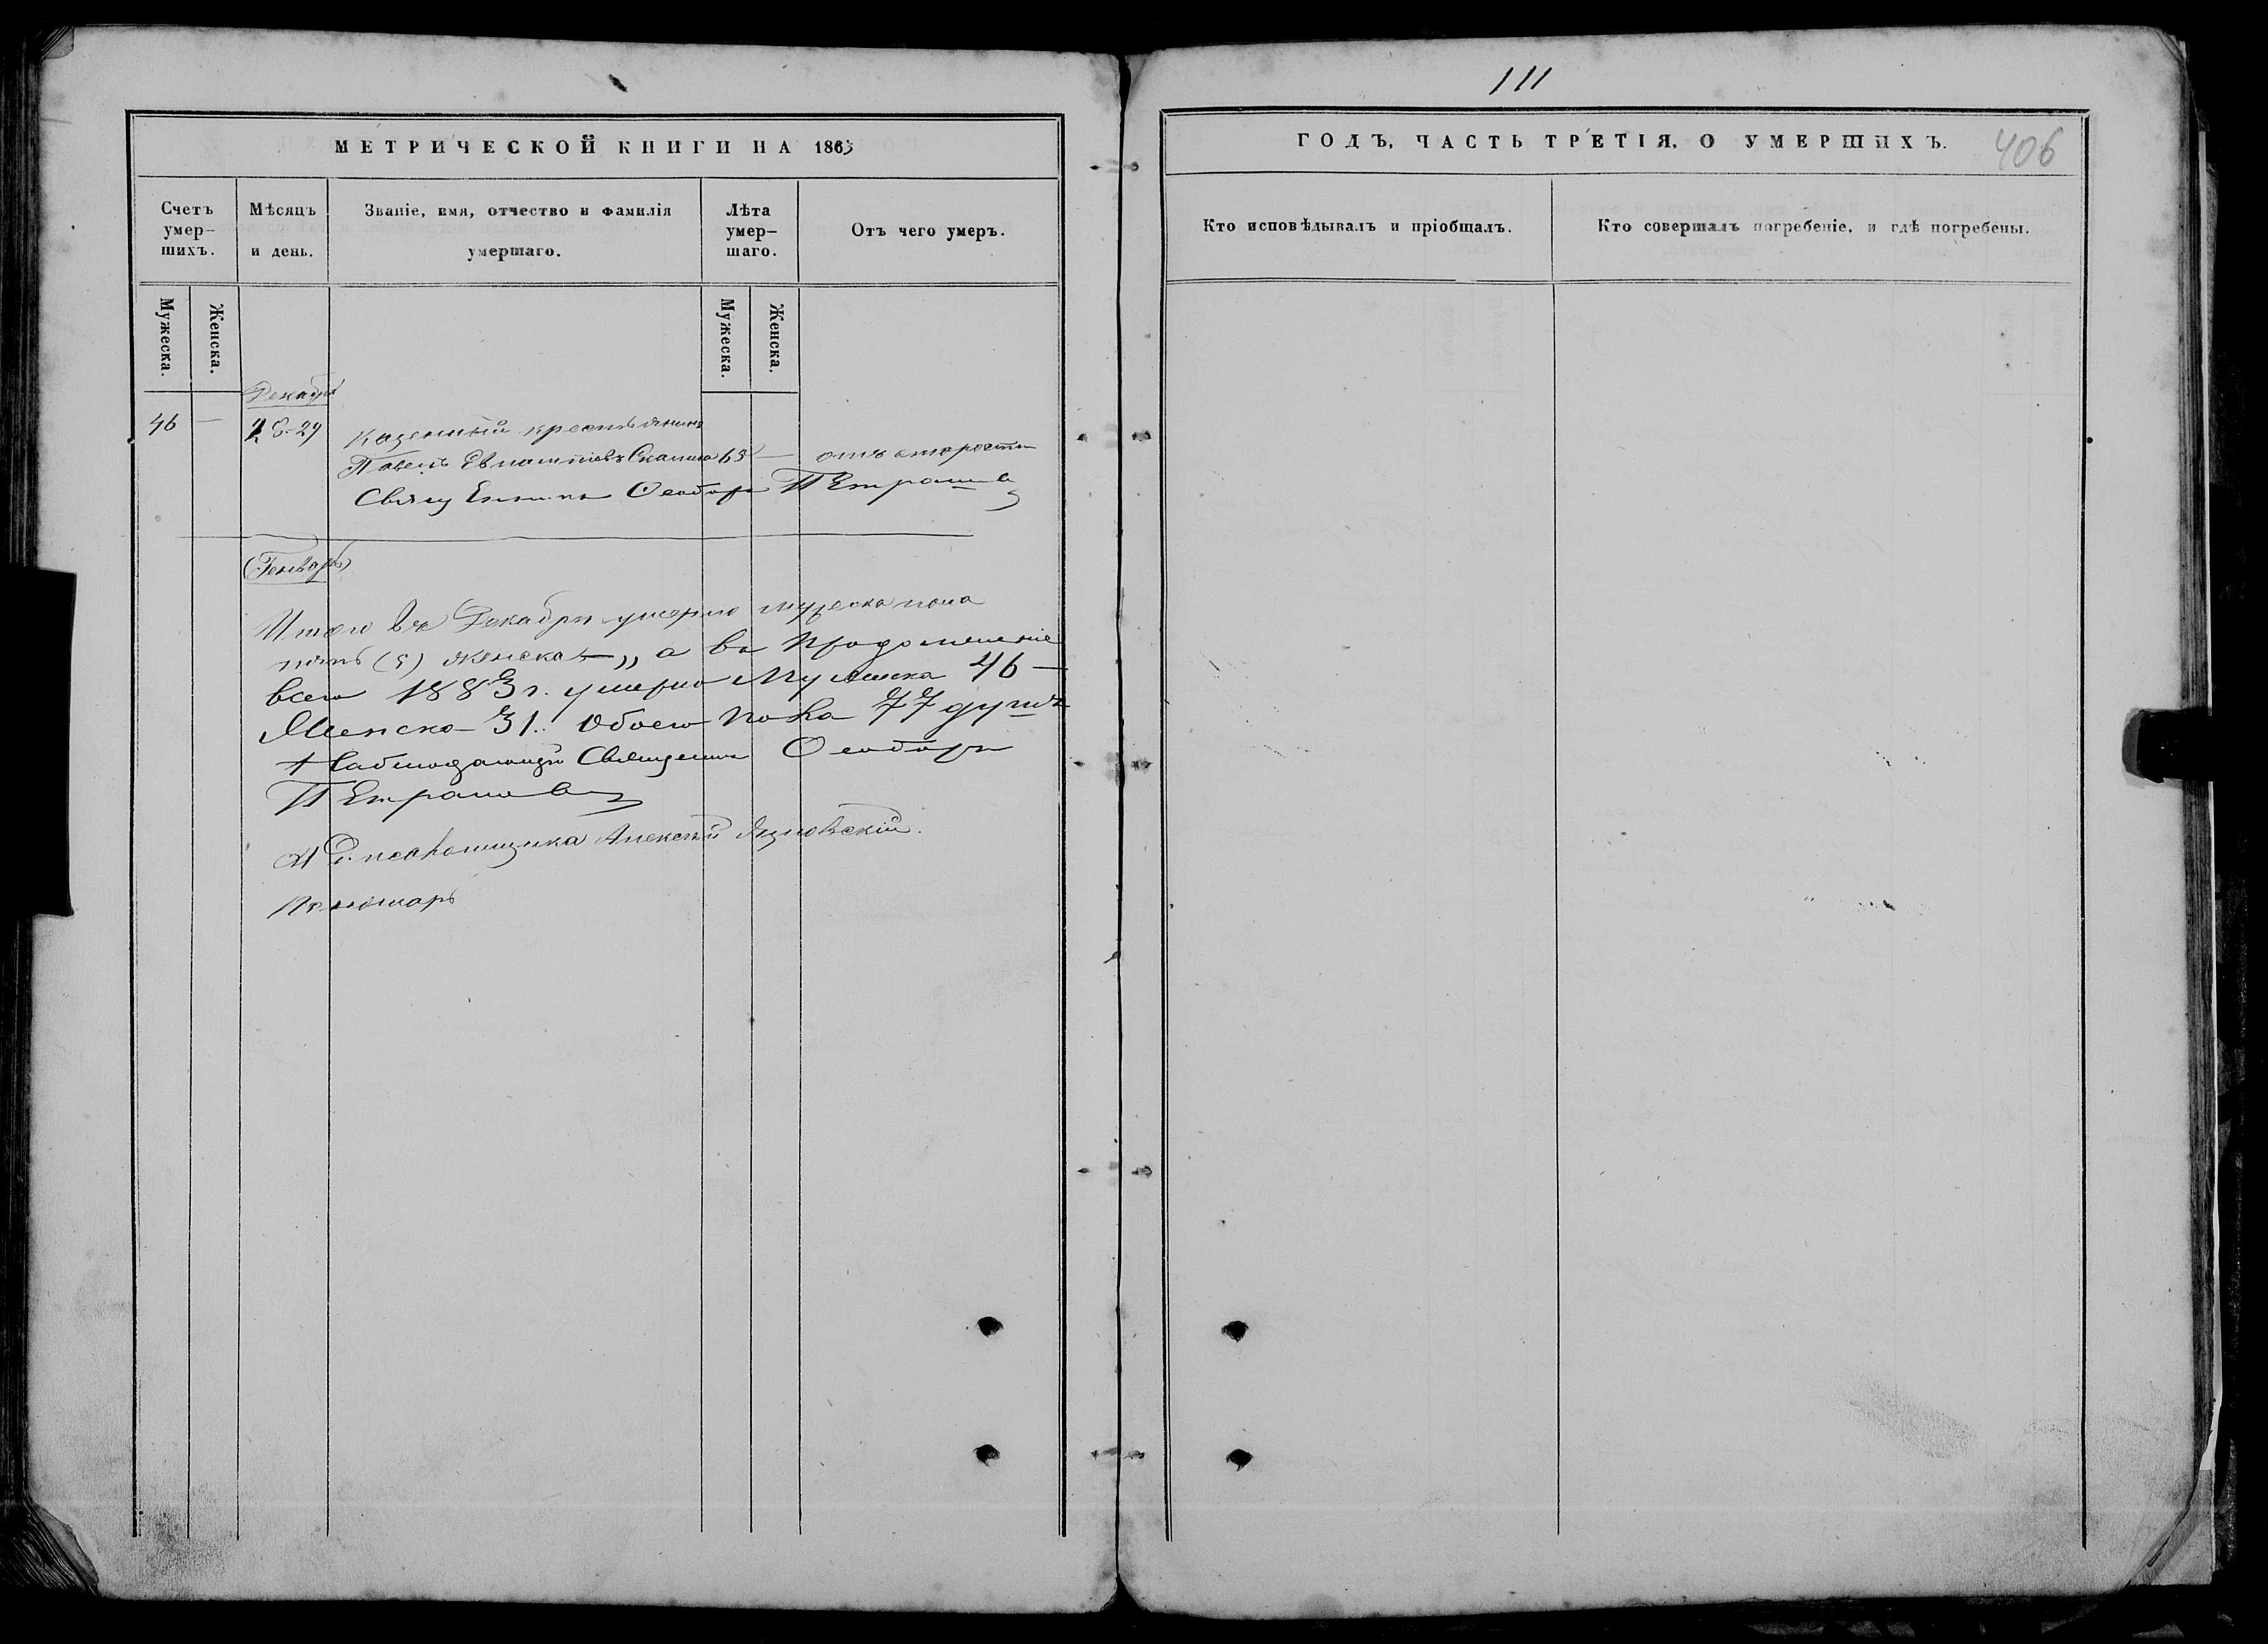 МЕТРИЧЕСКОЙ КНИГИ НА 1863
Счетъ умер-шихъ.
Мѣсяцъ и день.
Званіе, имя, отчество и фамилія умершаго.
Лѣта умер-шаго.
Отъ чего умеръ.
Мужеска.
Женска.
Мужеска.
Женска.
Декабрь
46 — 28-29 Казенный крестьянинъ
Павелъ 65 — отъ старости
Феодоръ Петрашев
(Генварь)
Итого въ Декабрѣ умерло мужеска пола
пять (5) женска — „ а въ продолженіе
всего 1883 г. умерло Мужеска 46 —
Женска 31. Обоего пола 77 душъ
Наблюдающій Священникъ Феодоръ
Петрашев
И. Д. псаломщика Алексѣй
111
ГОДЪ, ЧАСТЬ ТРЕТІЯ, О УМЕРШИХЪ.
406
Кто исповѣдывалъ и пріобщалъ.
Кто совершалъ погребеніе, и гдѣ погребены.